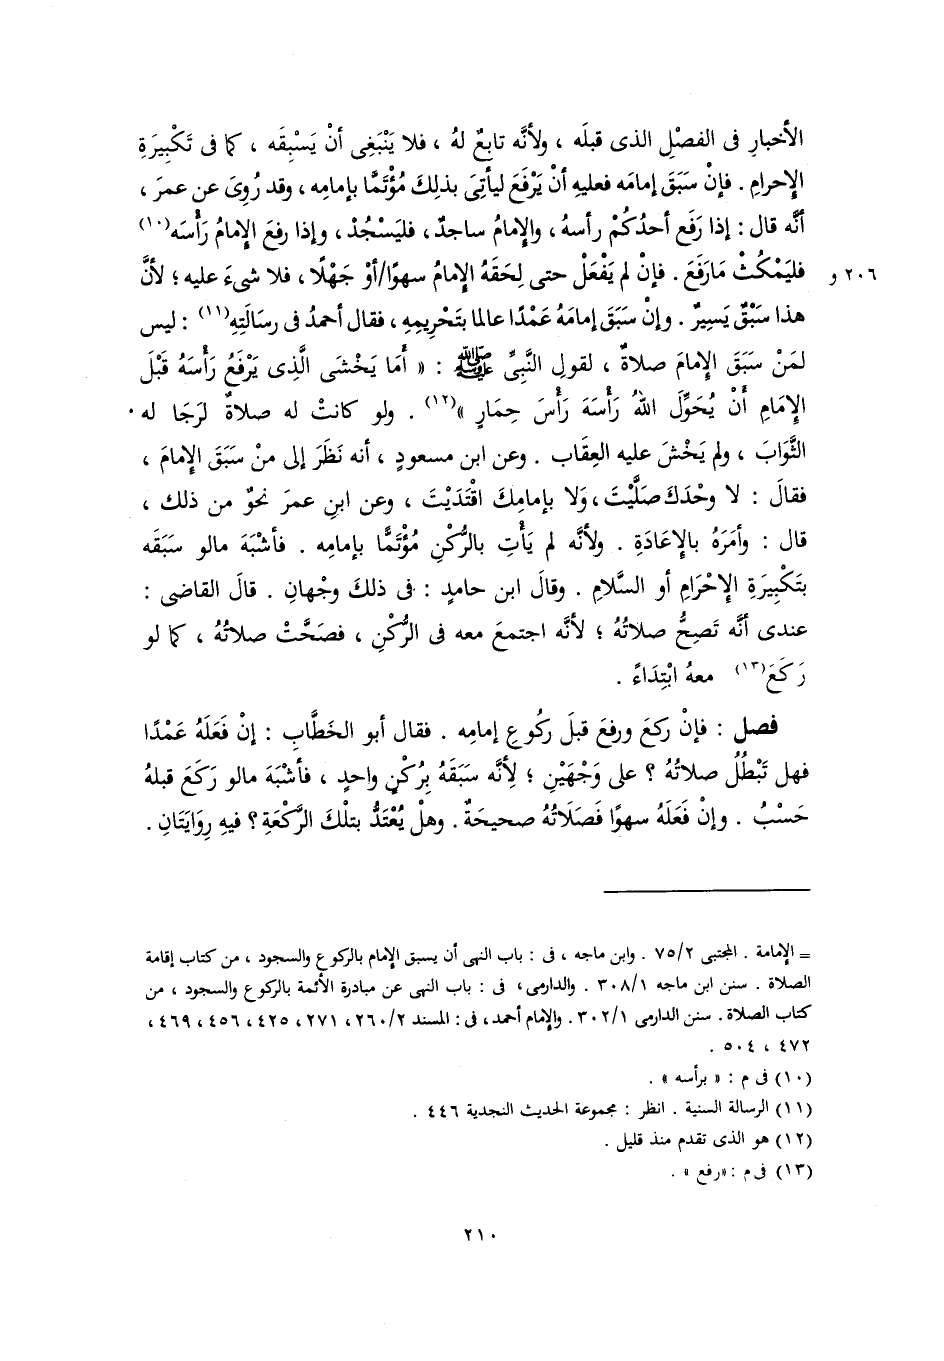 الأخبارِ فى الفصْلِ الذى قبلَه ، ولأنَّه تابِعٌ لهُ ، فلا يَنْبَغِى أنْ يَسْبِقَه ، كما فى تَكْبِيرَةِ
الإحرامِ . فإنْ سَبَقَ إمامَه فعليهِ أنْ يَرْفَعَ ليأتِىَ بذلِكَ مُؤْتَمًّا بإمامِه ، وقد رُوِىَ عن عمرَ ،
أنَّه قال : إذا رَفَع أحدُكُمْ رأسهُ ، والإمامُ ساجدٌ ، فليَسْجُدْ ، وإذا رفعَ الإمامُ رَأْسَه(١٠)
فليَمْكُثْ مَارَفَعَ . فإنْ لم يَفْعَلْ حتى لِحَقَهُ الإمامُ سهوًا/أوْ جَهْلًا ، فلا شىءَ عليه ؛ لأنَّ ٢٠٦ و
هذا سَبْقٌ يَسِيرٌ . وإنْ سَبَقَ إمامَهُ عَمْدًا عالما بتَحْرِيمِهِ ، فقال أحمدُ فى رسالَتِهِ(١١) : ليس
لمَنْ سَبَقَ الإمامَ صلاةٌ ، لقولِ النَّبِىِّ ﷺ : « أَمَا يَخْشَى الَّذِى يَرْفَعُ رَأْسَهُ قَبْلَ
الإمَامِ أَنْ يُحَوِّلَ اللهُ رَأْسَهُ رَأْسَ حِمَارٍ »(١٢) . ولو كانتْ له صلاةٌ لرَجَا له
الثَّوَابَ ، ولم يَخْشَ عليه العِقَاب . وعن ابن مسعودٍ ، أنه نَظَرَ إلى منْ سَبَقَ الإمامَ ،
فقالَ : لا وحْدَكَ صَلَّيْتَ ، وَلا بإمامِكَ اقْتَدَيْتَ ، وعن ابنِ عمرَ نحوٌ من ذلك ،
قال : وأمَرَهُ بالإعَادَةِ . ولأنَّه لم يَأْتِ بالرُّكْنِ مُؤْتَمًّا بإمامِه . فأشْبَهَ مالو سَبَقَه
بتَكْبِيرَةِ الإحْرَامِ أو السَّلامِ . وقالَ ابن حامدٍ : فى ذلكَ وجْهانِ . قالَ القاضى :
عندى أنَّه تَصِحُّ صلاتُهُ ؛ لأنَّه اجتمعَ معه فى الرُّكْنِ ، فصَحَّتْ صلاتُهُ ، كما لو
رَكَعَ(١٣) معهُ ابْتِدَاءً .
فصل : فإنْ ركعَ ورفعَ قبلَ ركُوعِ إمامِه . فقال أبو الخَطَّابِ : إنْ فَعَلَهُ عَمْدًا
فهل تَبْطُلُ صلاتُهُ ؟ على وَجْهَيْنِ ؛ لأِنَّه سَبَقَهُ بِرُكْنٍ واحدٍ ، فأشْبَهَ مالو رَكَعَ قبلهُ
حَسْبُ . وإنْ فَعَلَهُ سهوًا فَصَلَاتُهُ صحيحَةٌ . وهلْ يُعْتَدُّ بتلْكَ الرَّكْعَةِ ؟ فيهِ رِوَايَتَانِ .
= الإمامة . المجتبى ٧٥/٢ . وابن ماجه ، فى : باب النهى أن يسبق الإمام بالركوع والسجود ، من كتاب إقامة
الصلاة . سنن ابن ماجه ٣٠٨/١ . والدارمى ، فى : باب النهى عن مبادرة الأئمة بالركوع والسجود ، من
كتاب الصلاة . سنن الدارمى ٣٠٢/١ . والإمام أحمد ، فى : المسند ٢٦٠/٢ ، ٢٧١ ، ٤٢٥ ، ٤٥٦ ، ٤٦٩ ،
٤٧٢ ، ٥٠٤ .
(١٠) فى م : « برأسه » .
(١١) الرسالة السنية . انظر : مجموعة الحديث النجدية ٤٤٦ .
(١٢) هو الذى تقدم منذ قليل .
(١٣) فى م : «رفع » .
٢١٠